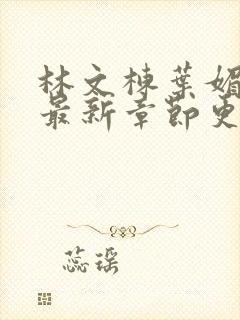 林文栋葉媚
最新章節更
蕊瑶